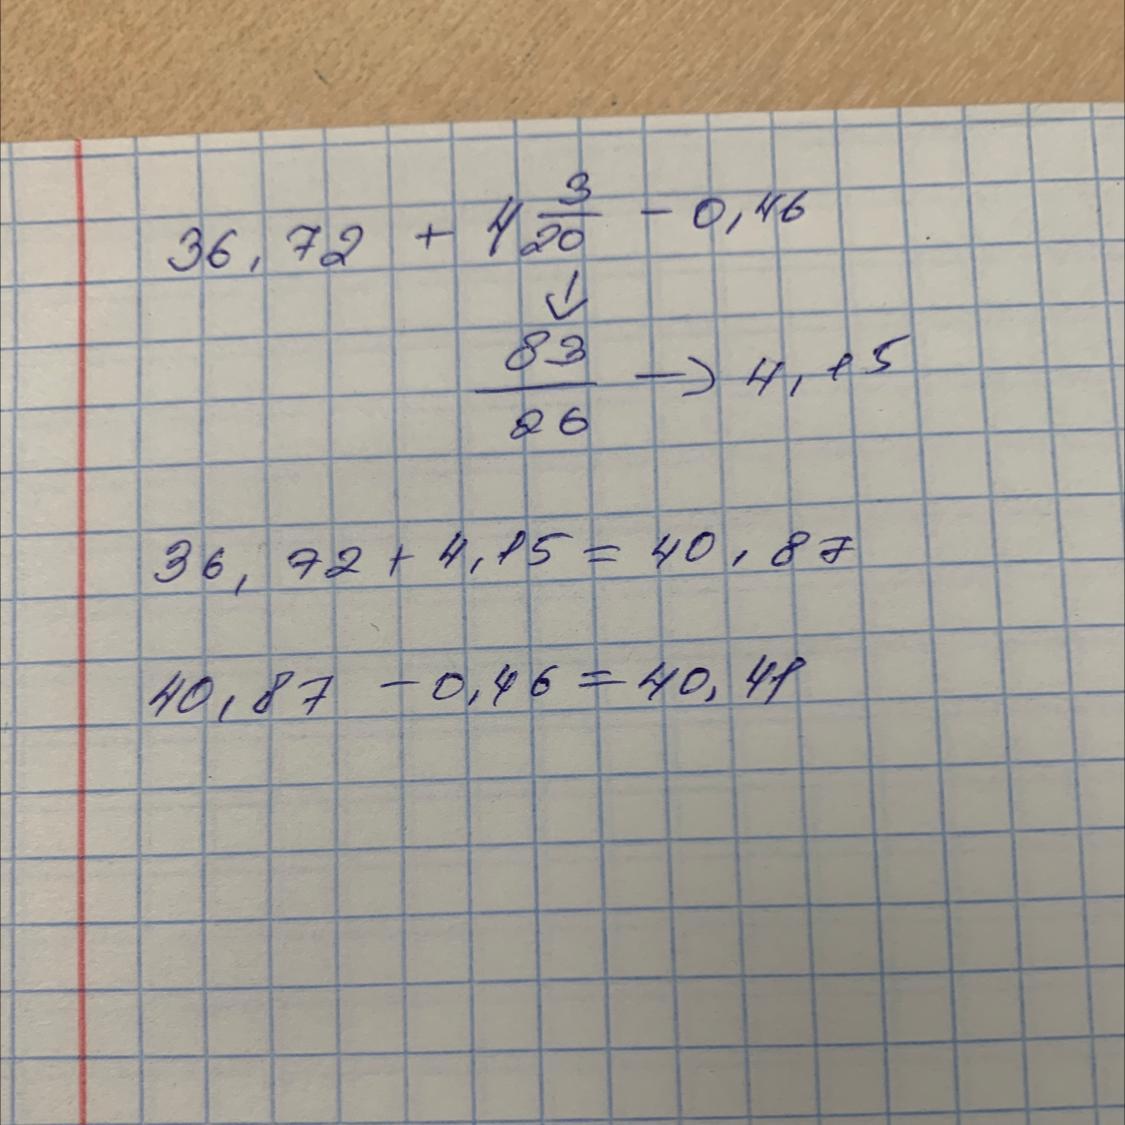 36,72 + 4 3/20 - 0,46
↓
83/20 → 4,15
36,72 + 4,15 = 40,87
40,87 - 0,46 = 40,41